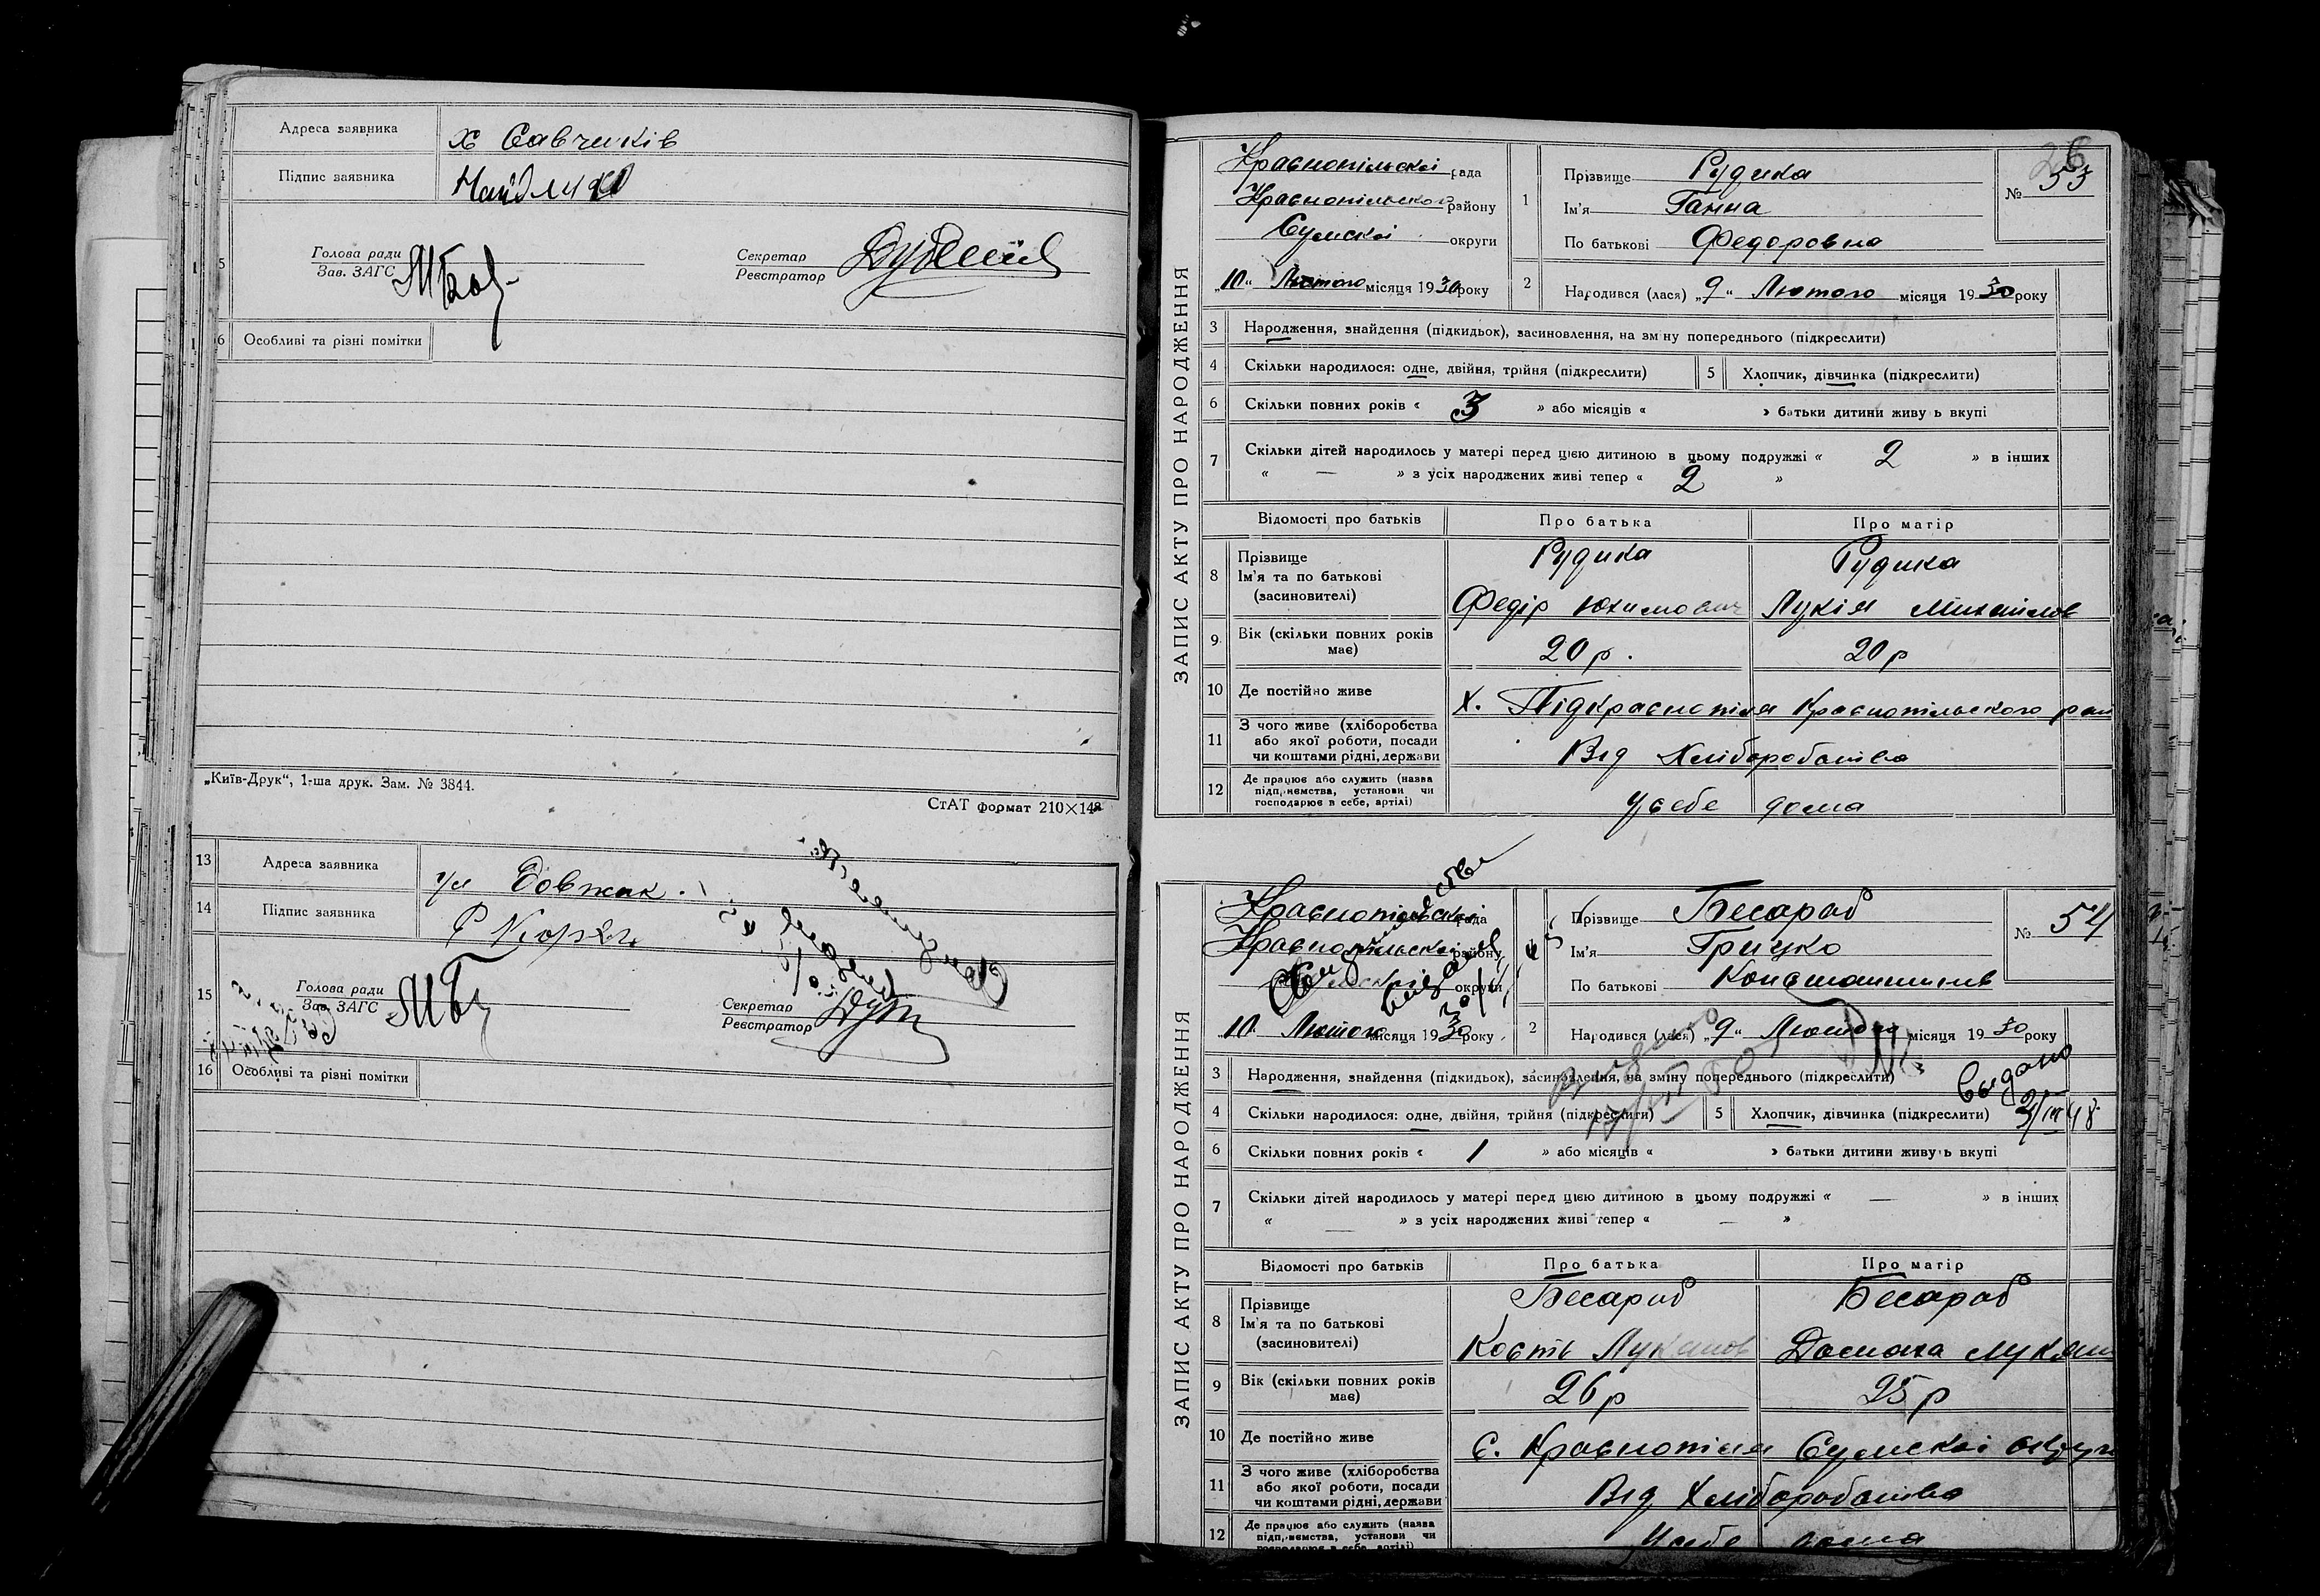 Адреса заявника х Савчиків
Підпис заявника
Голова ради
Зав. ЗАГС
Секретар
Реєстратор
6 Особливі та різні помітки
„Київ-Друк“, 1-ша друк. Зам. № 3844.
СтАТ формат 210×148
13 Адреса заявника
14 Підпис заявника
15 Голова ради
Зав. ЗАГС
Секретар
Реєстратор
16 Особливі та різні помітки
26
ЗАПИС АКТУ ПРО НАРОДЖЕННЯ
Краснопільскої рада
Краснопільского району
Сумскої округи
„10“ Лютого місяця 1930 року
1 Прізвище Рудика
Ім'я Ганна
По батькові Федоровна
№ 53
2 Народився (лася) „9“ Лютого місяця 1930 року
3 Народження, знайдення (підкидьок), засиновлення, на зміну попереднього (підкреслити)
4 Скільки народилося: одне, двійня, трійня (підкреслити) 5 Хлопчик, дівчинка (підкреслити)
6 Скільки повних років « 3 » або місяців « » батьки дитини живуть вкупі
7 Скільки дітей народилось у матері перед цією дитиною в цьому подружжі « 2 » в інших
« — » з усіх народжених живі тепер « 2 »
Відомості про батьків Про батька Про матір
8 Прізвище Рудика Рудика
Ім'я та по батькові
(засиновителі) Федір Юхимович Лукія Михайлов
9 Вік (скільки повних років має) 20 р. 20 р
10 Де постійно живе Х. Підкраснопілля Краснопільского рай
11 З чого живе (хліборобства
або якої роботи, посади
чи коштами рідні, держави Від Хліборобства
12 Де працює або служить (назва
підприємства, установи чи
господарює в себе, артілі) У себе дома
ЗАПИС АКТУ ПРО НАРОДЖЕННЯ
Краснопільскої рада
Краснопільскої району
округи
„10“ Лютого місяця 1930 року
Прізвище Бесараб
Ім'я Грицко
По батькові Константинов
№ 54
2 Народився (лася) „9“ Лютого місяця 1930 року
3 Народження, знайдення (підкидьок), засиновлення, на зміну попереднього (підкреслити)
Выдано
4 Скільки народилося: одне, двійня, трійня (підкреслити) 5 Хлопчик, дівчинка (підкреслити)
6 Скільки повних років « 1 » або місяців « » батьки дитини живуть вкупі
7 Скільки дітей народилось у матері перед цією дитиною в цьому подружжі « — » в інших
« — » з усіх народжених живі тепер « — »
Відомості про батьків Про батька Про матір
8 Прізвище Бесараб Бесараб
Ім'я та по батькові
(засиновителі) Кость Лукянов Домаха Лукян
9 Вік (скільки повних років має) 26 р 25 р
10 Де постійно живе С. Краснопілля Сумскої округи
11 З чого живе (хліборобства
або якої роботи, посади
чи коштами рідні, держави Від Хліборобства
12 Де працює або служить (назва
підприємства, установи чи
господарює в себе, артілі) У себе дома